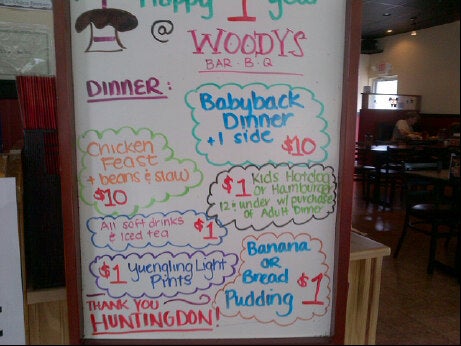 Happy 1 year
@ WOODY'S
BAR-B-Q
DINNER:
Babyback
Dinner
+1 side
$10
Chicken
Feast
+ beans & slaw
$10
$1 Kids Hotdog
or Hamburger
12 & under w/ purchase
of Adult Dinner
All soft drinks
& iced tea $1
$1 Yuengling Light
Pints
Banana
OR
Bread
Pudding $1
THANK YOU
HUNTINGDON!